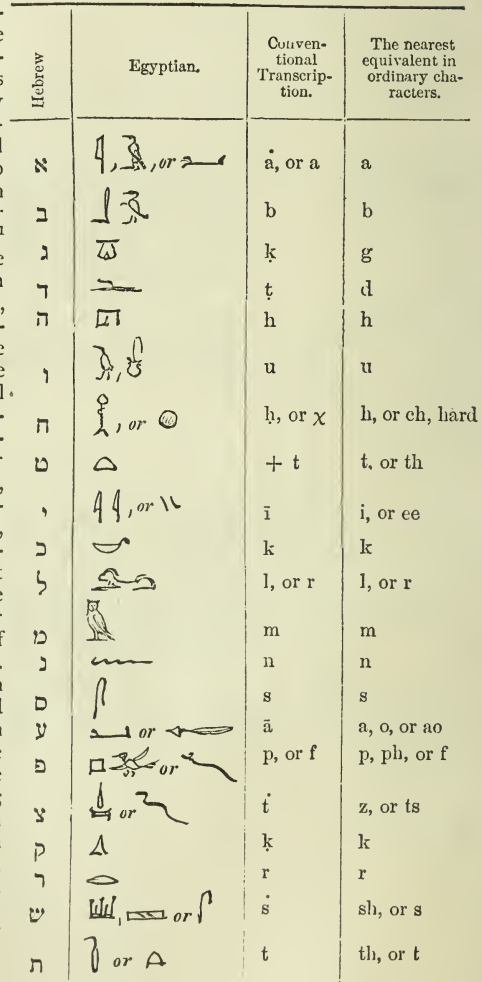 Hebrew
Egyptian.
Conven-
tional
Transcrip-
tion.
The nearest
equivalent in
ordinary cha-
racters.
א , , or ȧ, or a a
ב b b
ג ḳ g
ד ṭ d
ה h h
ו , u u
ח , or ḥ, or χ h, or ch, hard
ט + t t, or th
י , or ī i, or ee
כ k k
ל l, or r l, or r
מ m m
נ n n
ס s s
ע or ā a, o, or ao
פ or p, or f p, ph, or f
צ or ṫ z, or ts
ק ḳ k
ר r r
ש , or ṡ sh, or s
ת or t th, or t